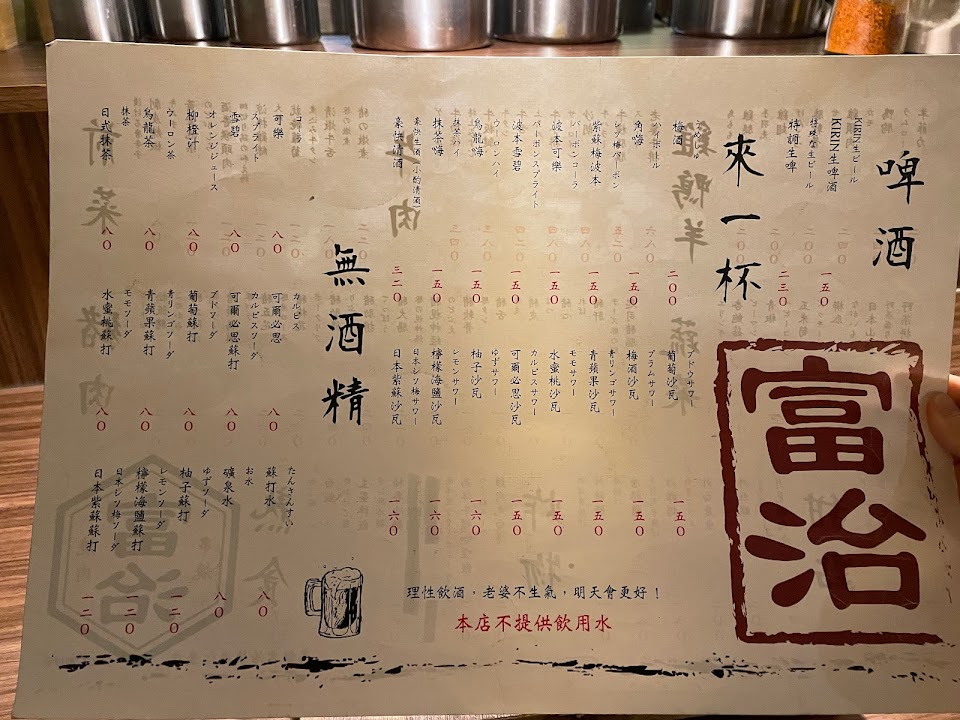 啤酒
KIRIN生ビール
KIRIN生啤酒 一五〇
特殊な生ビール
特調生啤 二三〇
來一杯
梅酒 二〇〇
ハイボール
角嗨 一五〇
紫蘇梅波本 一五〇
バーボンコーラ
波本可樂 一五〇
バーボンスプライト
波本雪碧 一五〇
ウーロンハイ
烏龍嗨 一五〇
抹茶ハイ
抹茶嗨 一五〇
豪快清酒 三二〇
ブドウサワー
葡萄沙瓦 一五〇
プラムサワー
梅酒沙瓦 一五〇
青リンゴサワー
青蘋果沙瓦 一五〇
モモサワー
水蜜桃沙瓦 一五〇
カルピスサワー
可爾必思沙瓦 一五〇
ゆずサワー
柚子沙瓦 一六〇
レモンサワー
檸檬海鹽沙瓦 一六〇
日本シソ梅サワー
日本紫蘇沙瓦 一六〇
無酒精
コーラ
可樂 八〇
スプライト
雪碧 八〇
オレンジジュース
柳橙汁 八〇
ウーロン茶
烏龍茶 八〇
抹茶
日式抹茶 八〇
カルピス
可爾必思 八〇
カルピスソーダ
可爾必思蘇打 八〇
ブドソーダ
葡萄蘇打 八〇
青リンゴソーダ
青蘋果蘇打 八〇
モモソーダ
水蜜桃蘇打 八〇
たんさんすい
蘇打水 八〇
お水
礦泉水 八〇
ゆずソーダ
柚子蘇打 一二〇
レモンソーダ
檸檬海鹽蘇打 一二〇
日本シソ梅ソーダ
日本紫蘇蘇打 一二〇
理性飲酒，老婆不生氣，明天會更好！
本店不提供飲用水
富治